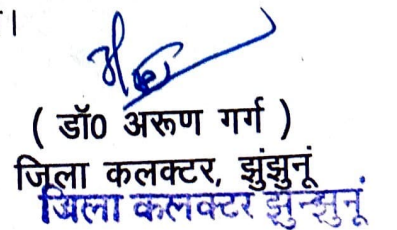 ।
( डॉ0 अरूण गर्ग )
जिला कलक्टर, झुंझुनूं
जिला कलक्टर झुन्झुनूं